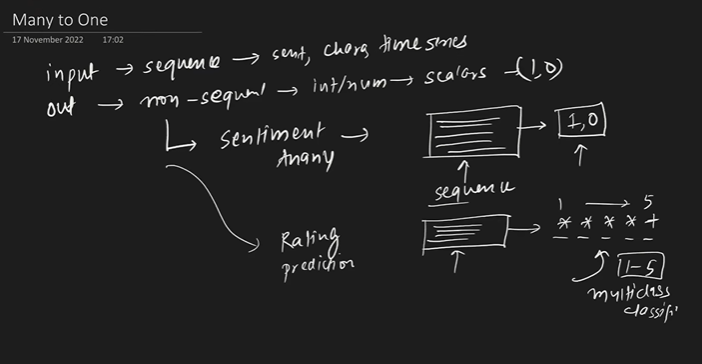 Many to One
17 November 2022 17:02
input → sequence → sent, chars, time series
out → non-sequent → int/num → scalars - (1,0)
Sentiment → → 1,0
Anany
sequence
1 → 5
* * * * +
Rating →
prediction
1-5
multiclass
classifi